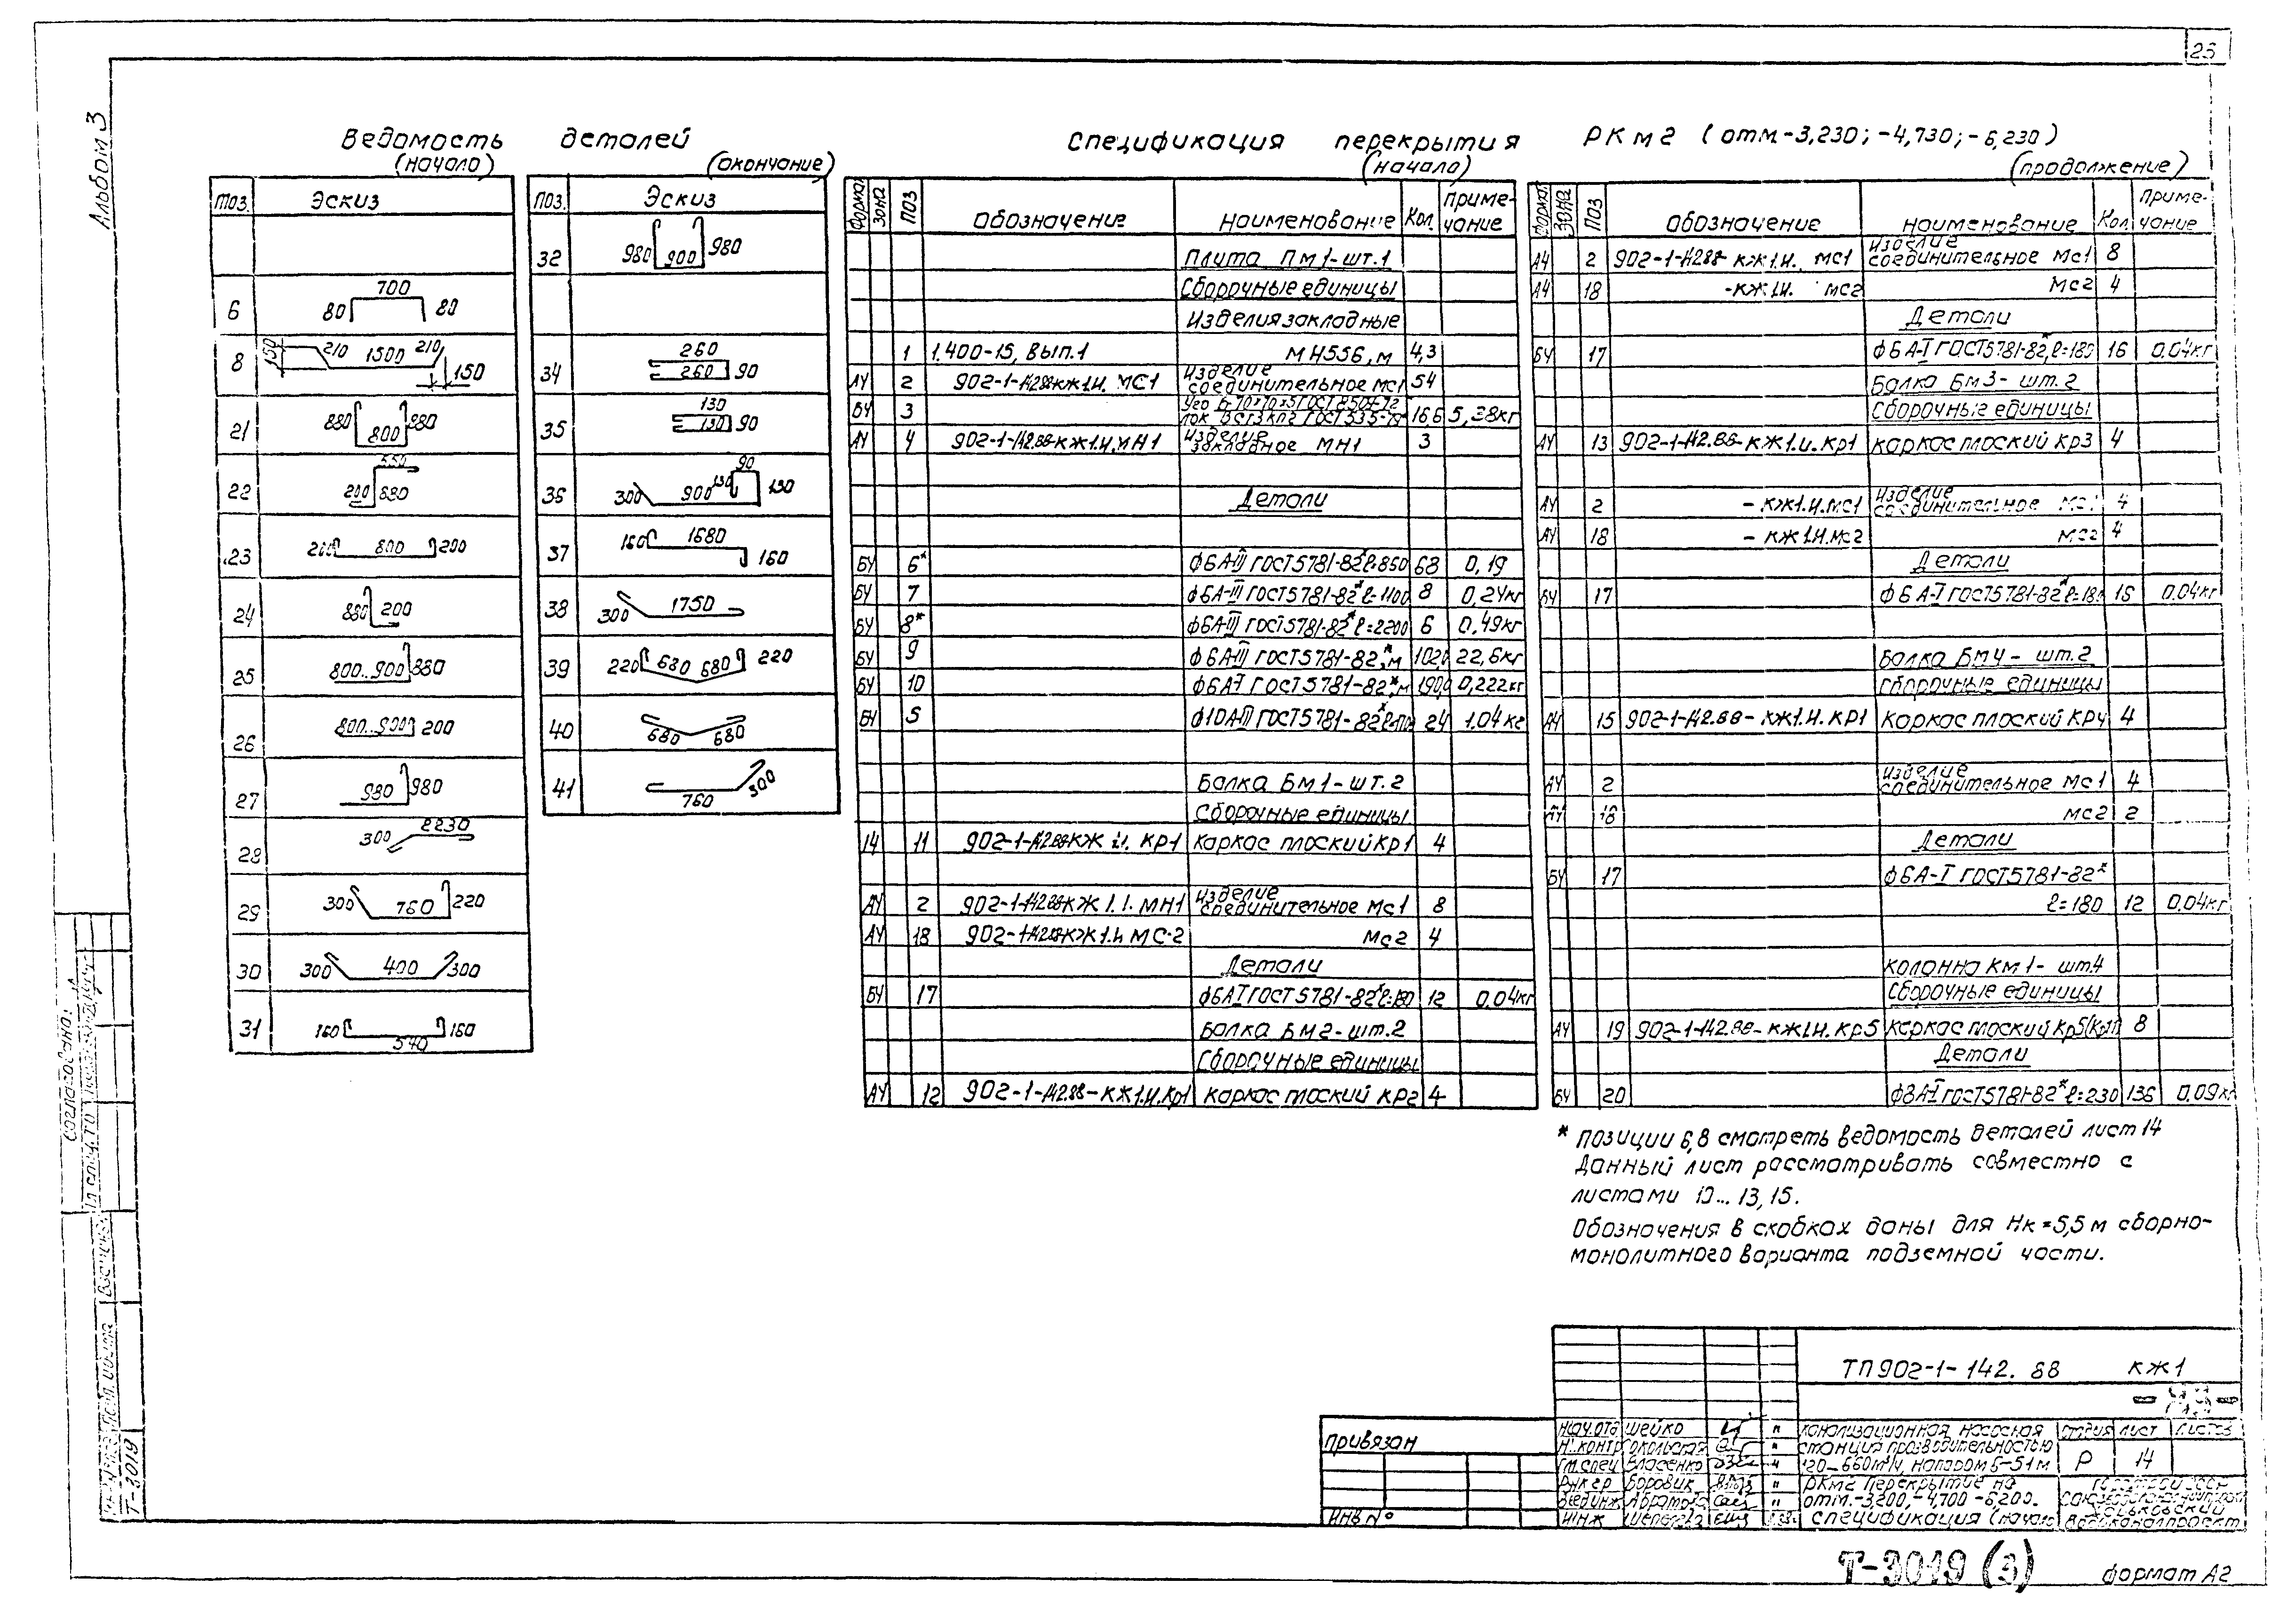 23
Альбом 3
Ведомость деталей
(начало)
(окончание)
Поз. Эскиз
6 80 700 80
8 150 210 1500 210 150
21 880 800 880
22 550 200 880
23 200 800 200
24 880 200
25 800..900 880
26 800..900 200
27 980 980
28 300 2230
29 300 760 220
30 300 400 300
31 160 540 160
Поз. Эскиз
32 980 900 980
34 260 260 90
35 130 130 90
36 300 900 130 90 130
37 160 1680 160
38 300 1750
39 220 680 680 220
40 680 680
41 760 300
Спецификация перекрытия РКм2 (отм.-3,230; -4,730; -6,230)
(начало)
Формат Зона Поз Обозначение Наименование Кол. Примечание
Плита Пм1-шт.1
Сборочные единицы
Изделия закладные
1 1.400-15, вып.1 МН556, м 4,3
А4 2 902-1-142.88-КЖ1.И. МС1 Изделие соединительное МС1 54
БЧ 3 16,6 5,38кг
А4 4 902-1-142.88-КЖ1.И.МН1 Изделие закладное МН1 3
Детали
БЧ 6* ф6А-III ГОСТ5781-82* ℓ=850 68 0,19
БЧ 7 ф6А-III ГОСТ5781-82* ℓ=1100 8 0,24кг
БЧ 8* ф6А-III ГОСТ5781-82* ℓ=2200 6 0,49кг
БЧ 9 ф6А-III ГОСТ5781-82*, м 22,6кг
БЧ 10 ф6А-I ГОСТ5781-82*, м 0,222кг
БЧ 5 ф10А-III ГОСТ5781-82* 24 1,04кг
Балка Бм1-шт.2
Сборочные единицы
11 902-1-142.88-КЖ1.И. КР1 Каркас плоский Кр1 4
А4 2 902-1-142.88-КЖ1.И. МН1 Изделие соединительное МС1 8
А4 18 902-1-142.88-КЖ1.И МС-2 МС2 4
Детали
БЧ 17 ф6А-I ГОСТ5781-82* ℓ=180 12 0,04кг
Балка Бм2-шт.2
Сборочные единицы
А4 12 902-1-142.88-КЖ1.И.Кр1 Каркас плоский КР2 4
(продолжение)
Формат Зона Поз Обозначение Наименование Кол. Примечание
А4 2 902-1-142.88-КЖ1.И. МС1 Изделие соединительное МС1 8
А4 18 -КЖ1.И. МС2 МС2 4
Детали
БЧ 17 ф6А-I ГОСТ5781-82* ℓ=180 16 0,04кг
Балка Бм3-шт.2
Сборочные единицы
А4 13 902-1-142.88-КЖ1.И.КР1 Каркас плоский Кр3 4
А4 2 -КЖ1.И.МС1 Изделие соединительное МС1 4
А4 18 -КЖ1.И.МС2 МС2 4
Детали
БЧ 17 ф6А-I ГОСТ5781-82* ℓ=180 16 0,04кг
Балка Бм4-шт.2
Сборочные единицы
А4 15 902-1-142.88-КЖ1.И.КР1 Каркас плоский КР4 4
А4 2 Изделие соединительное МС1 4
А4 18 МС2 2
Детали
БЧ 17 ф6А-I ГОСТ5781-82*
ℓ=180 12 0,04кг
Колонна Км1-шт.4
Сборочные единицы
А4 19 902-1-142.88-КЖ1.И.КР5 Каркас плоский Кр5 8
Детали
БЧ 20 ф8А-I ГОСТ5781-82* ℓ=230 136 0,09кг
* Позиции 6,8 смотреть ведомость деталей лист 14
Данный лист рассматривать совместно с
листами 10...13, 15.
Обозначения в скобках даны для Нк=5,5м сборно-
монолитного варианта подземной части.
ТП 902-1-142.88 КЖ1
Привязан
Инв №
Нач.отд Шейко
Н.контр Сокольская
Гл.спец Власенко
Рук.гр Боровик
Вед.инж
Инж
Канализационная насосная
станция производительностью
120-660м³/ч, напором 5-51м
РКм2 Перекрытие на
отм.-3,200, -4,700 -6,200.
Спецификация (начало)
Стадия Лист Листов
Р 14
Госстрой СССР
Союзводоканалпроект
Харьковский
Водоканалпроект
Согласовано:
Т-3019
Т-3019 (3)
Формат А2